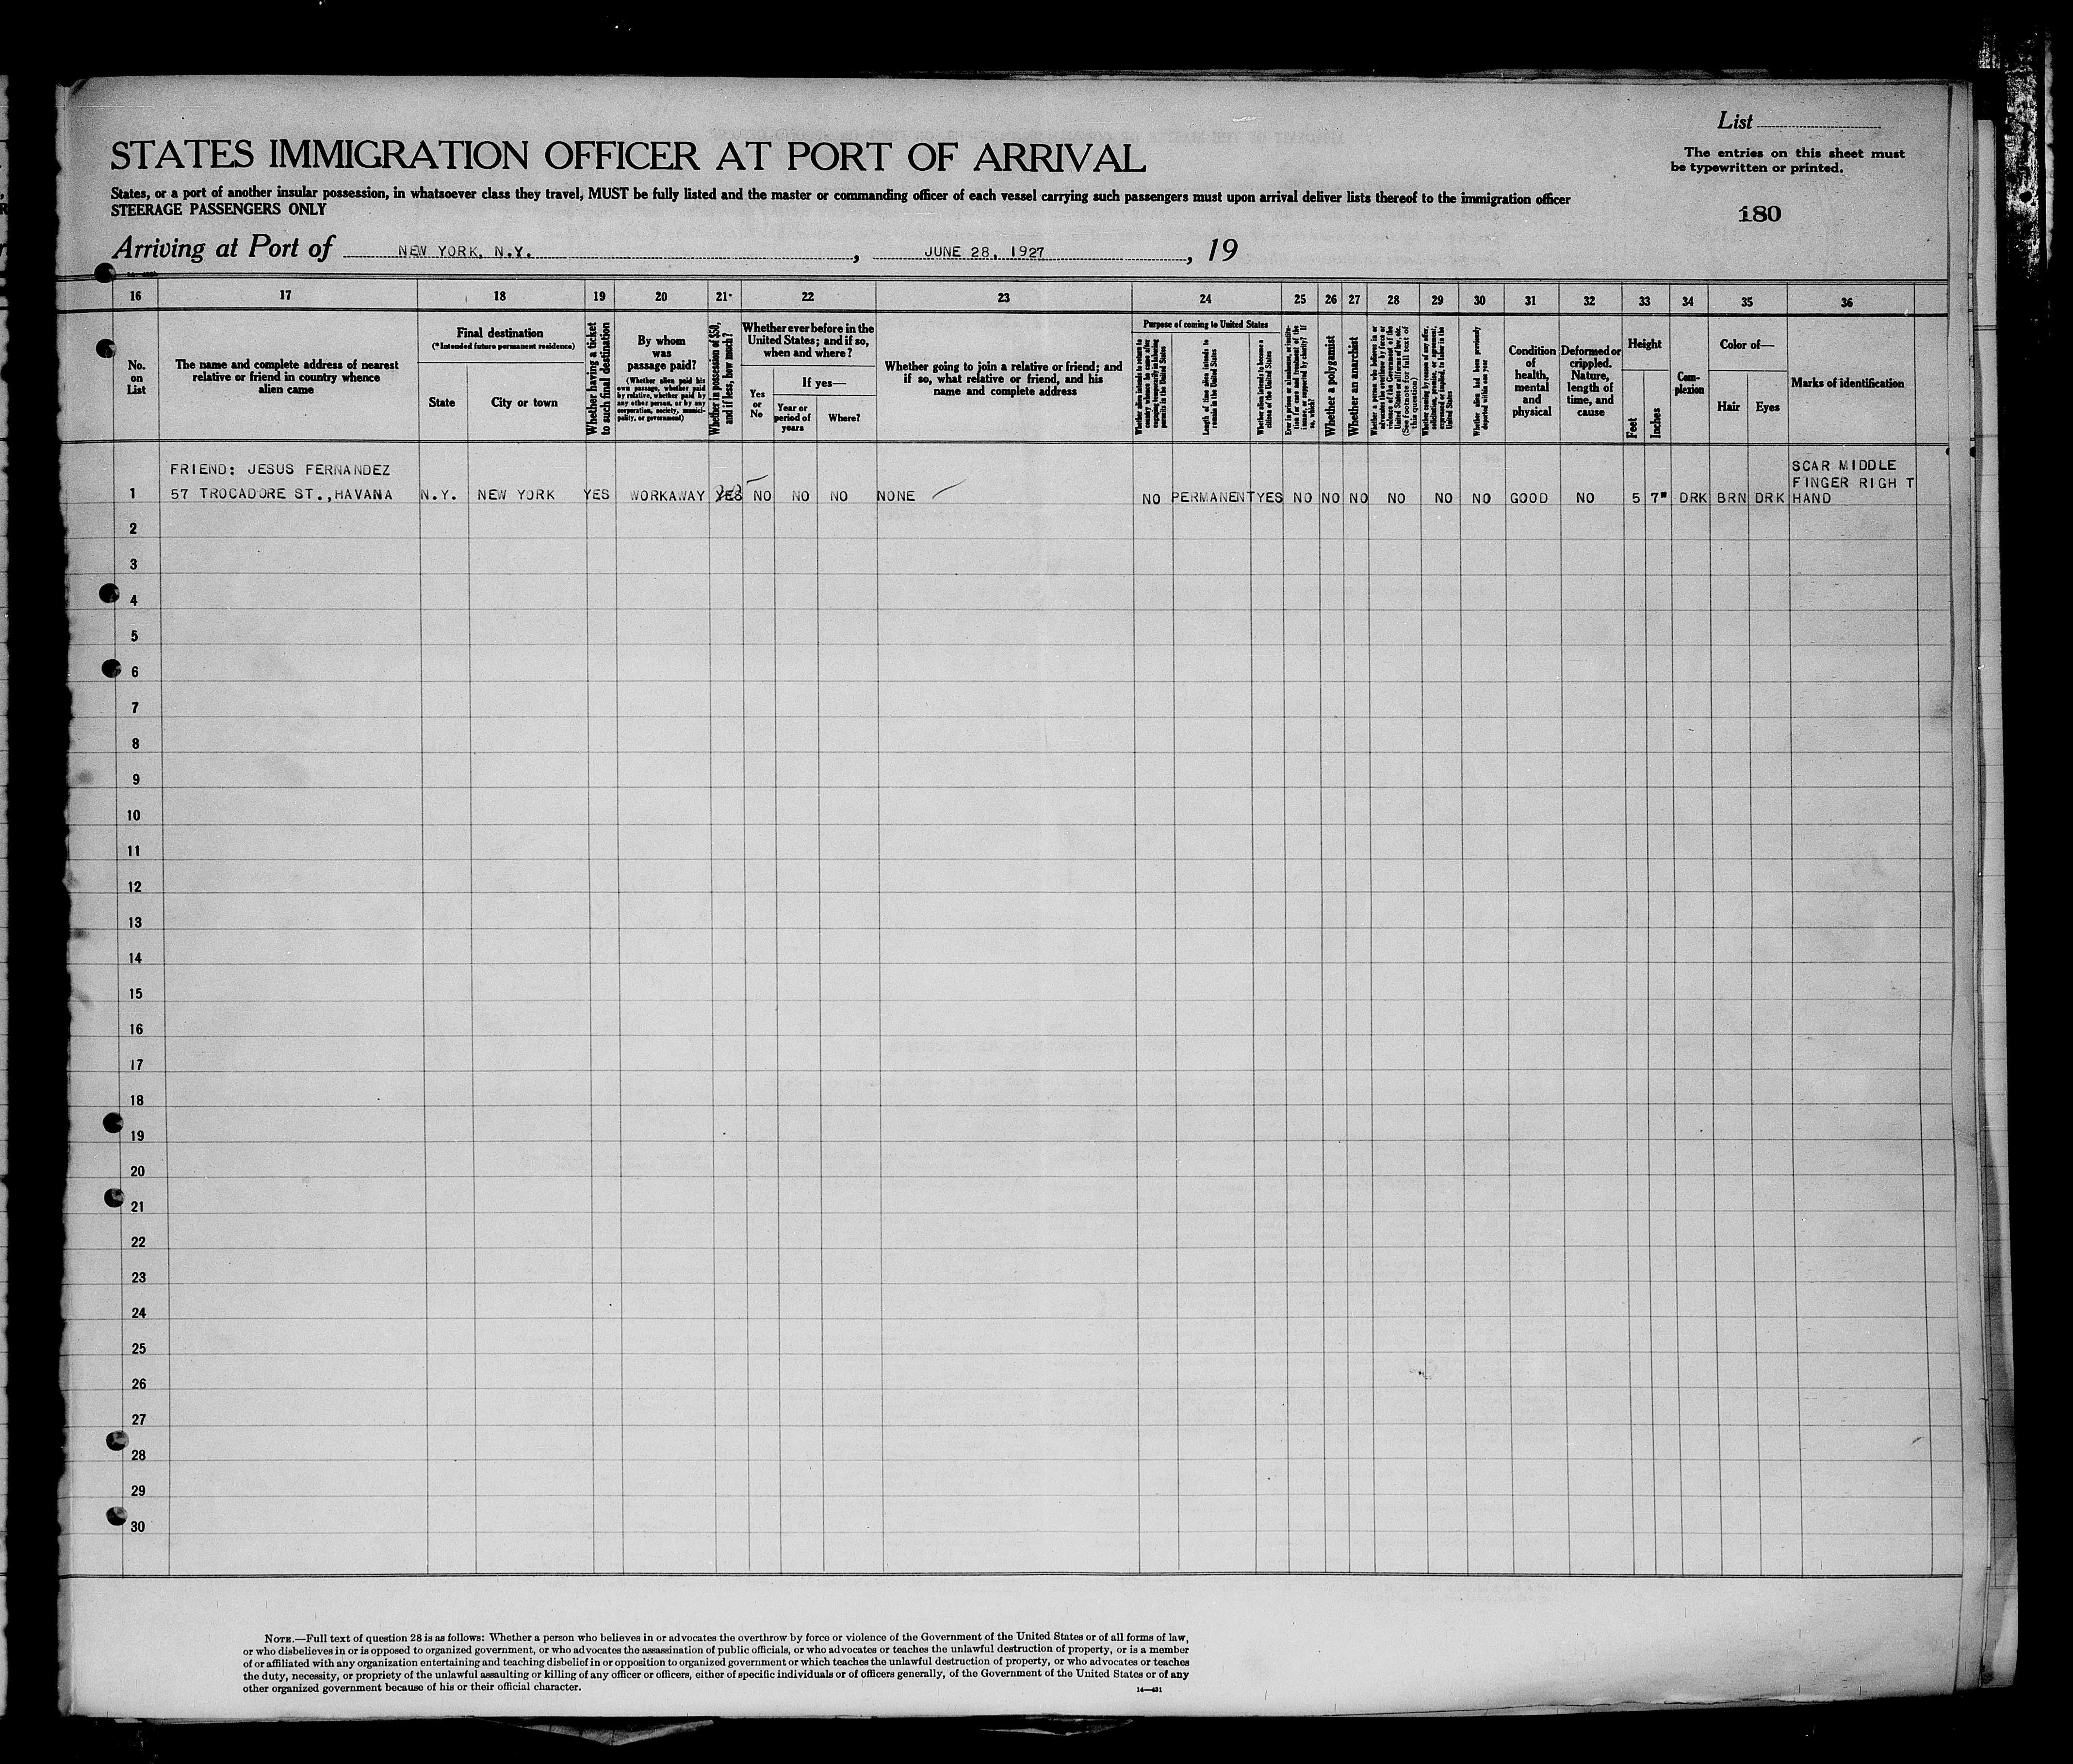 List
STATES IMMIGRATION OFFICER AT PORT OF ARRIVAL
The entries on this sheet must
be typewritten or printed.
States, or a port of another insular possession, in whatsoever class they travel, MUST be fully listed and the master or commanding officer of each vessel carrying such passengers must upon arrival deliver lists thereof to the immigration officer
STEERAGE PASSENGERS ONLY
180
Arriving at Port of NEW YORK, N.Y. , JUNE 28, 1927 , 19
16 17 18 19 20 21* 22 23 24 25 26 27 28 29 30 31 32 33 34 35 36
No.
on
List
The name and complete address of nearest
relative or friend in country whence
alien came
Final destination
(*Intended future permanent residence)
State
City or town
Whether having a ticket
to such final destination
By whom
was
passage paid?
(Whether alien paid his
own passage, whether paid
by relative, whether paid by
any other person, or by any
corporation, society, munici-
pality, or government)
Whether in possession of $50,
and if less, how much?
Whether ever before in the
United States; and if so,
when and where?
Yes
or
No
If yes—
Year or
period of
years
Where?
Whether going to join a relative or friend; and
if so, what relative or friend, and his
name and complete address
Purpose of coming to United States
Whether alien intends to return to
country whence he came after
engaging temporarily in laboring
pursuits in the United States
Length of time alien intends to
remain in the United States
Whether alien intends to become a
citizen of the United States
Ever in prison or almshouse, or institu-
tion for care and treatment of the
insane, or supported by charity? If
so, which?
Whether a polygamist
Whether an anarchist
Whether a person who believes in or
advocates the overthrow by force or
violence of the Government of the
United States or all forms of law, etc.
(See footnote for full text of
this question)
Whether coming by reason of any offer,
solicitation, promise, or agreement,
expressed or implied, to labor in the
United States
Whether alien had been previously
deported within one year
Condition
of
health,
mental
and
physical
Deformed or
crippled.
Nature,
length of
time, and
cause
Height
Feet
Inches
Com-
plexion
Color of—
Hair
Eyes
Marks of identification
FRIEND: JESUS FERNANDEZ SCAR MIDDLE
FINGER RIGH T
1 57 TROCADORE ST.,HAVANA N.Y. NEW YORK YES WORKAWAY YES NO NO NO NONE NO PERMANENT YES NO NO NO NO NO NO GOOD NO 5 7" DRK BRN DRK HAND
2
3
4
5
6
7
8
9
10
11
12
13
14
15
16
17
18
19
20
21
22
23
24
25
26
27
28
29
30
NOTE.—Full text of question 28 is as follows: Whether a person who believes in or advocates the overthrow by force or violence of the Government of the United States or of all forms of law,
or who disbelieves in or is opposed to organized government, or who advocates the assassination of public officials, or who advocates or teaches the unlawful destruction of property, or is a member
of or affiliated with any organization entertaining and teaching disbelief in or opposition to organized government or which teaches the unlawful destruction of property, or who advocates or teaches
the duty, necessity, or propriety of the unlawful assaulting or killing of any officer or officers, either of specific individuals or of officers generally, of the Government of the United States or of any
other organized government because of his or their official character.
14—431